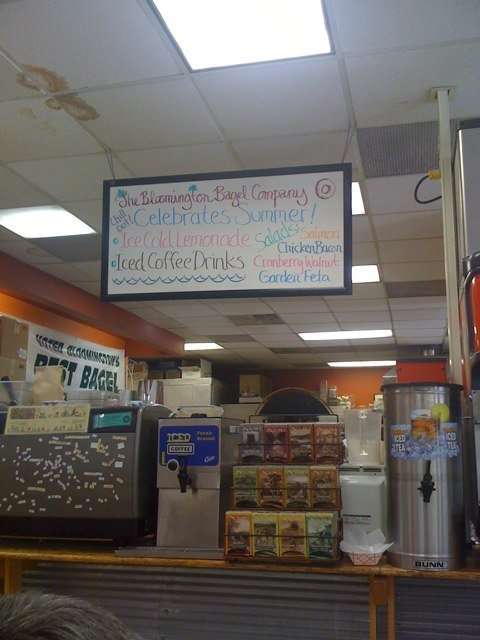 The Bloomington Bagel Company
Chill Out!
Celebrates Summer!
• Ice Cold Lemonade
• Iced Coffee Drinks
Salads:
Salmon
Chicken Bacon
Cranberry Walnut
Garden Feta
VOTED BLOOMINGTON'S
BEST BAGEL
ICED
COFFEE
Fresh
Brewed
ICED
TEA
ICED
TEA
BUNN